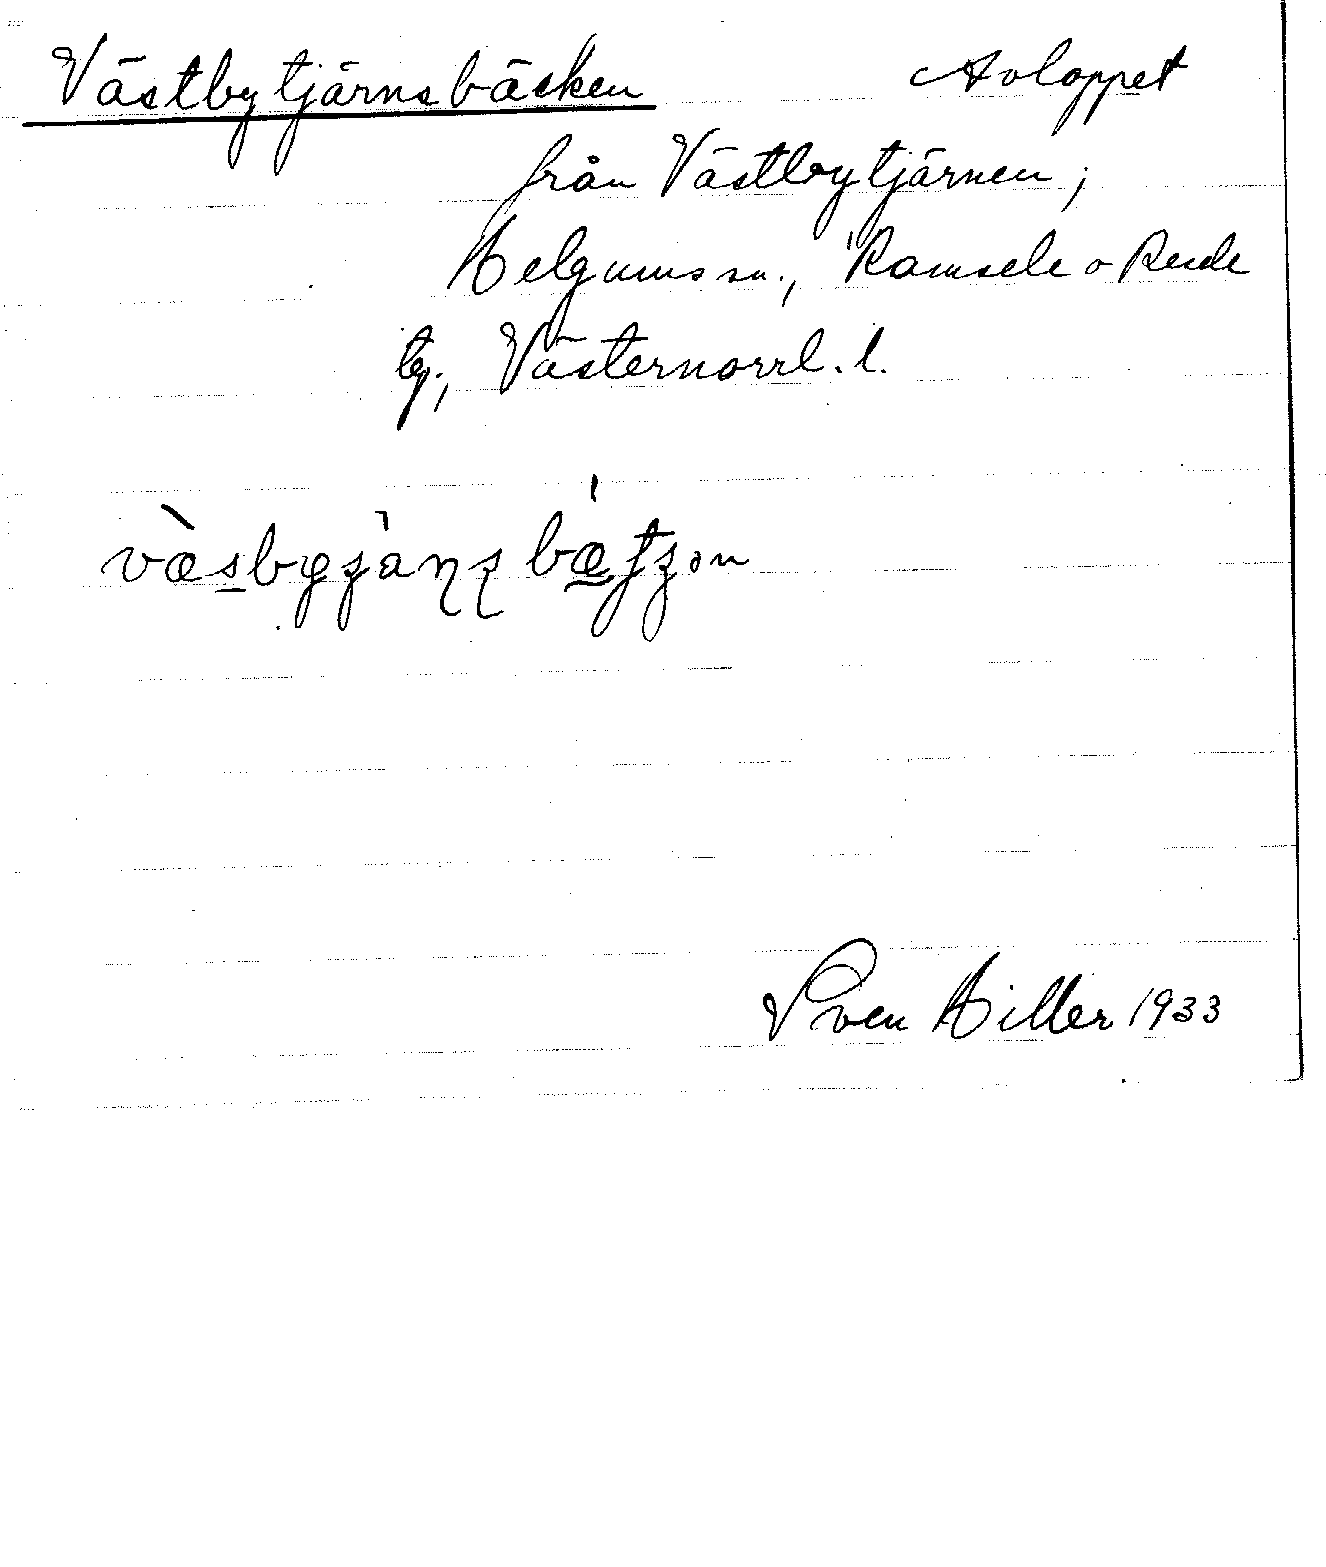 Västbytjärnsbäcken Avloppet
från Västbytjärnen;
Helgums sn., Ramsele o Resele
tg., Västernorrl. l.
Sven Hiller 1933